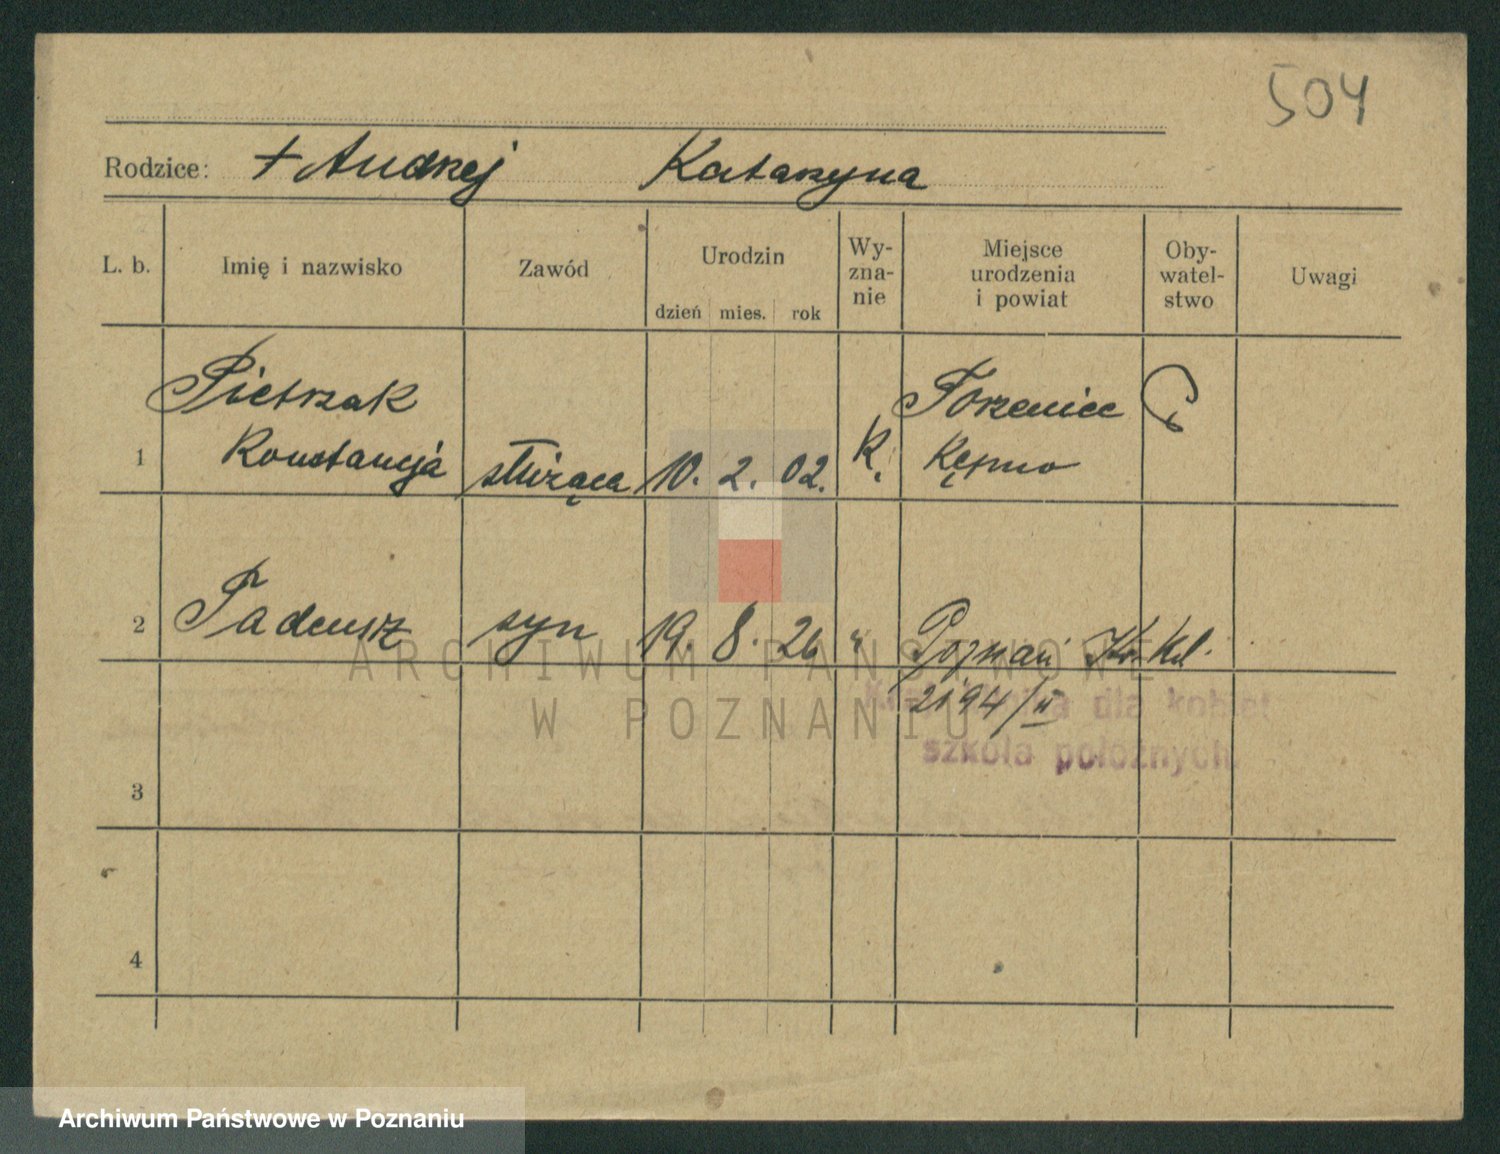 504
Rodzice: + Andrzej Katarzyna
L. b. Imię i nazwisko Zawód Urodzin dzień mies. rok Wy-zna-nie Miejsce urodzenia i powiat Oby-watel-stwo Uwagi
Pietrzak Torzeniec
1 Konstancja służąca 10. 2. 02. K. Kępno
2 Tadeusz syn 19. 8. 26 " Poznań
2194/II
dla kobiet
szkoła położnych
3
4
ARCHIWUM PAŃSTWOWE
W POZNANIU
Archiwum Państwowe w Poznaniu